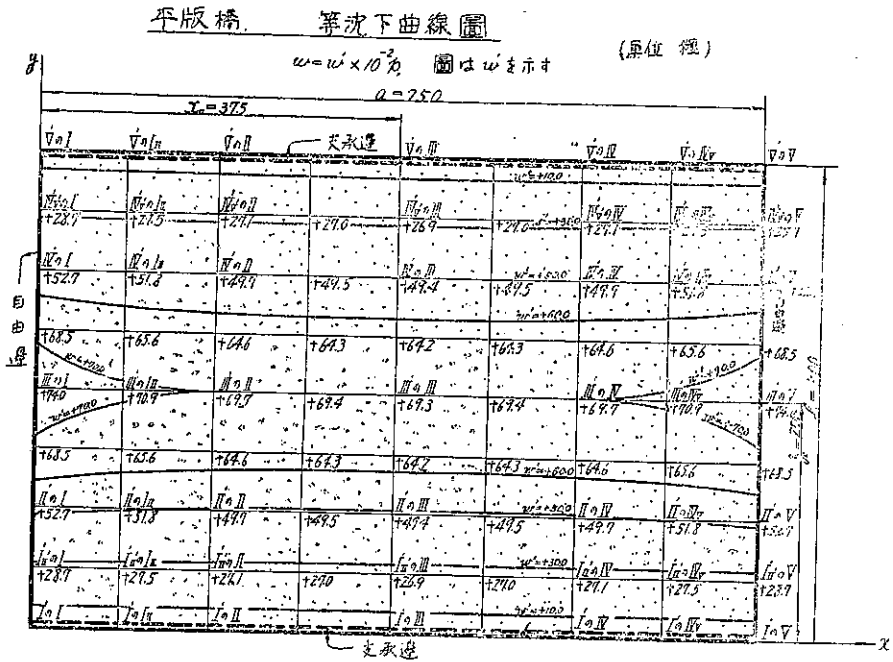 平版橋 等沈下曲線圖
w=w'×10⁻² 圖は w' を示す (單位 糎)
y
a=750
x₀=375
V́のI V́のI_II V́のII 支承邊 V́のIII V́のIV V́のIV_V V́のV
w'=+10.0
IV́_VのI IV́_VのI_II IV́_VのII IV́_VのIII IV́_VのIV
+28.7 +27.5 +27.1 +27.0 +26.9 +27.0 w'=+30.0 +27.1
IV́のI IV́のI_II IV́のII IV́のIII w'=+50.0 IV́のIV
+52.7 +51.8 +49.7 +49.5 +49.4 +49.5 +49.7
自由邊
w'=+60.0
+68.5 +65.6 +64.6 +64.3 +64.2 +64.3 +64.6 +65.6 +68.5
w'=+70.0 w'=+70.0
IIÍのI IIÍのI_II IIÍのII IIÍのIII IIÍのIV IIÍのIV_V IIÍのV
+74.0 +70.9 +69.7 +69.4 +69.3 +69.4 +69.7 +70.9
w'=+70.0 w'=+70.0
+68.5 +65.6 +64.6 +64.3 +64.2 +64.3 w'=+60.0 +64.6 +65.6 +68.5
IÍのI IÍのI_II IÍのII IÍのIII w'=+50.0 IÍのIV IÍのIV_V IÍのV
+52.7 +51.8 +49.7 +49.5 +49.4 +49.5 +49.7 +51.8 +52.7
Í_IIのI Í_IIのI_II Í_IIのII Í_IIのIII w'=+30.0 Í_IIのIV Í_IIのIV_V Í_IIのV
+28.7 +27.5 +27.1 +27.0 +26.9 +27.0 +27.1 +27.5 +28.7
w'=+10.0
ÍのI ÍのI_II ÍのII ÍのIII ÍのIV ÍのIV_V ÍのV
x
支承邊